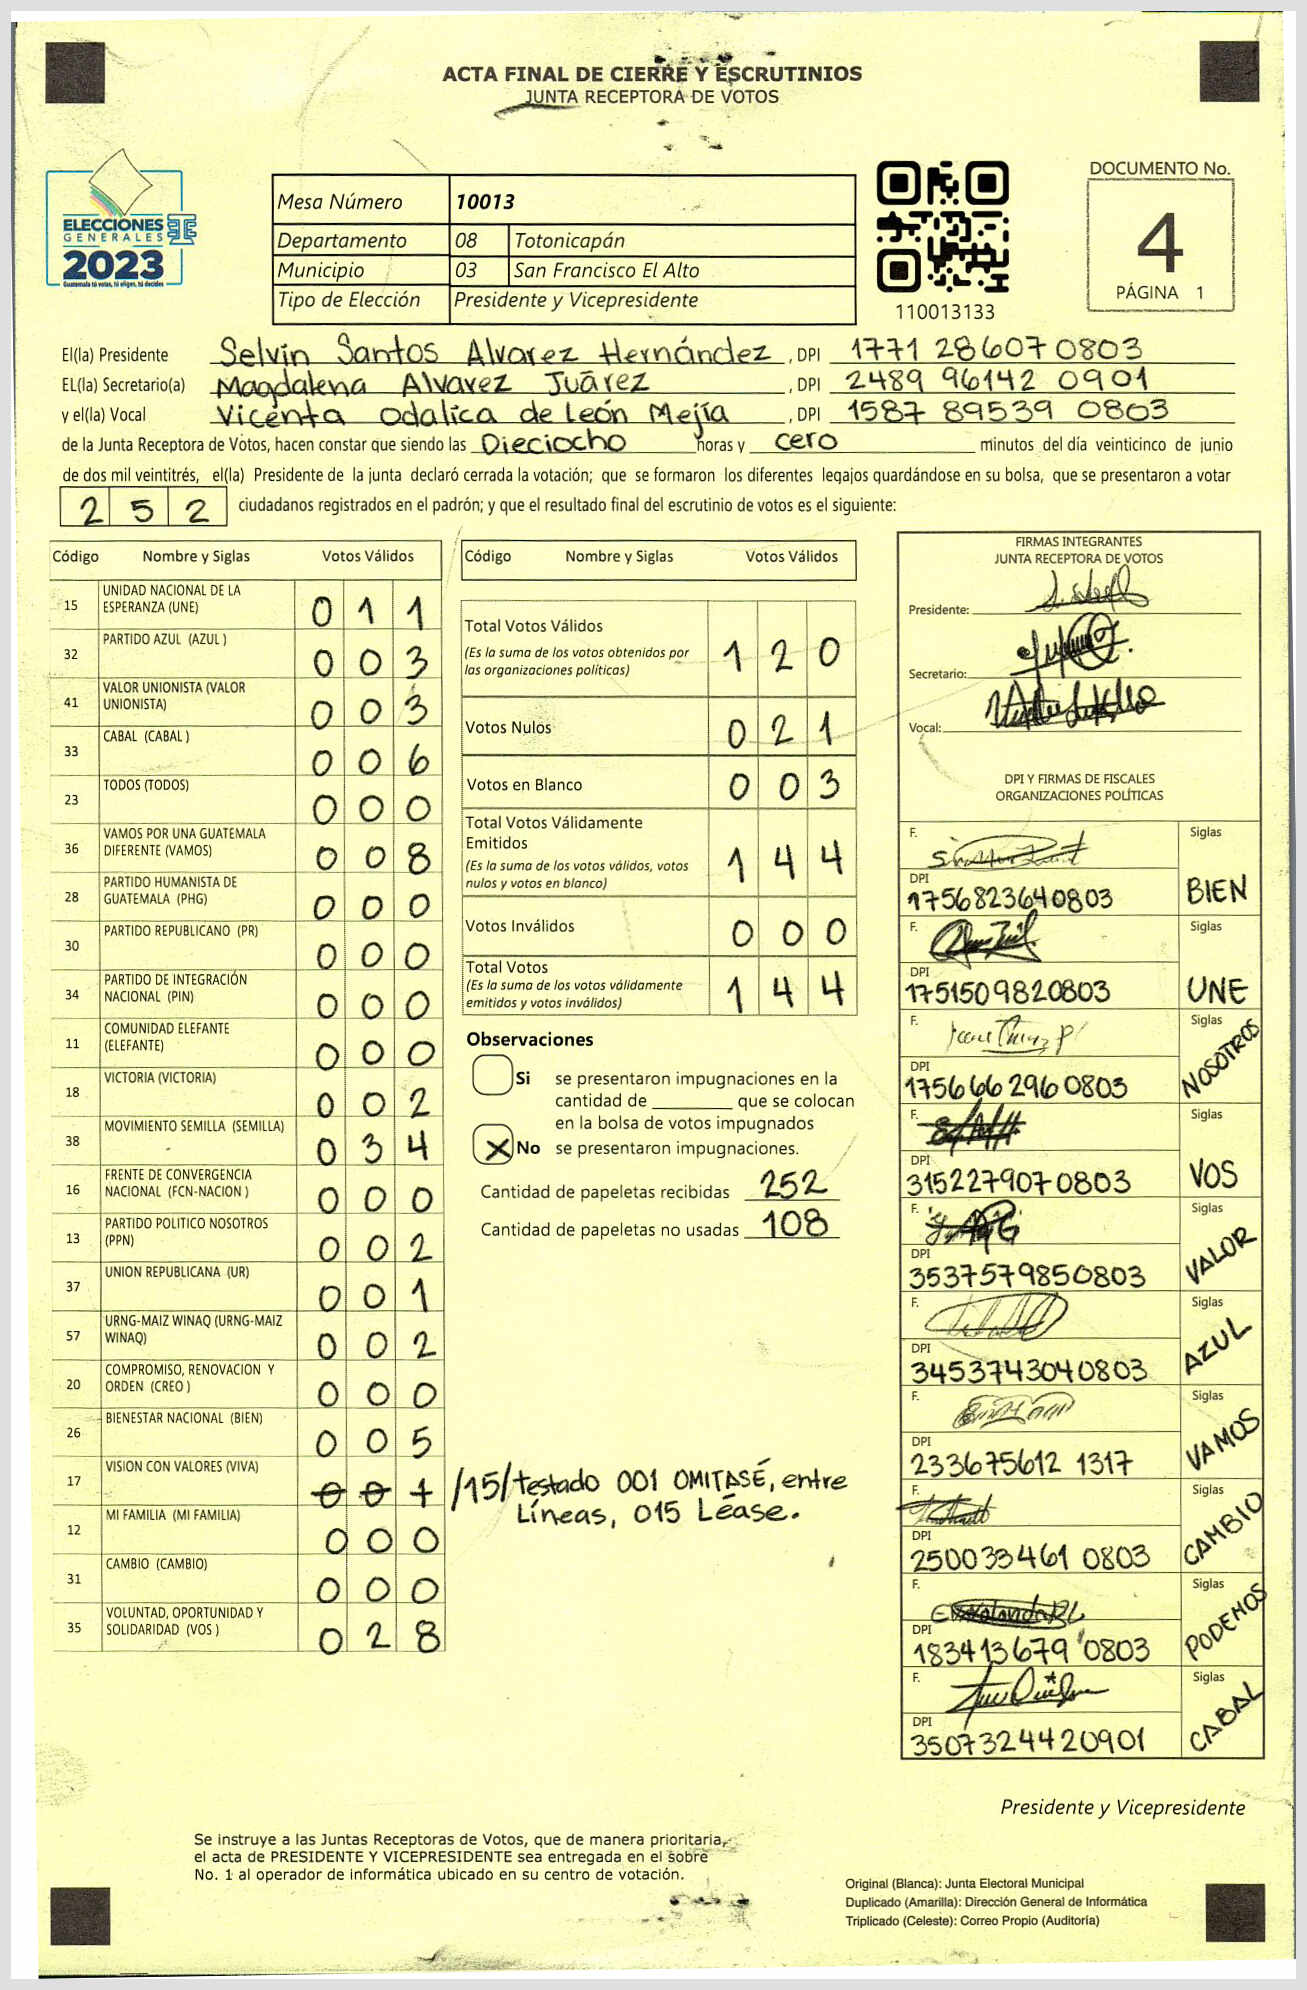 ACTA FINAL DE CIERRE Y ESCRUTINIOS
JUNTA RECEPTORA DE VOTOS
ELECCIONES
GENERALES
2023
Guatemala tú votas, tú eliges, tú decides
Mesa Número 10013
Departamento 08 Totonicapán
Municipio 03 San Francisco El Alto
Tipo de Elección Presidente y Vicepresidente
110013133
DOCUMENTO No.
4
PÁGINA 1
El(la) Presidente Selvin Santos Alvarez Hernández , DPI 1771 28607 0803
EL(la) Secretario(a) Magdalena Alvarez Juárez , DPI 2489 96142 0901
y el(la) Vocal Vicenta Odalica de León Mejía , DPI 1587 89539 0803
de la Junta Receptora de Votos, hacen constar que siendo las Dieciocho horas y cero minutos del día veinticinco de junio
de dos mil veintitrés, el(la) Presidente de la junta declaró cerrada la votación; que se formaron los diferentes legajos quardándose en su bolsa, que se presentaron a votar
252 ciudadanos registrados en el padrón; y que el resultado final del escrutinio de votos es el siguiente:
Código Nombre y Siglas Votos Válidos
15 UNIDAD NACIONAL DE LA
ESPERANZA (UNE) 0 1 1
32 PARTIDO AZUL (AZUL ) 0 0 3
41 VALOR UNIONISTA (VALOR
UNIONISTA) 0 0 3
33 CABAL (CABAL ) 0 0 6
23 TODOS (TODOS) 0 0 0
36 VAMOS POR UNA GUATEMALA
DIFERENTE (VAMOS) 0 0 8
28 PARTIDO HUMANISTA DE
GUATEMALA (PHG) 0 0 0
30 PARTIDO REPUBLICANO (PR) 0 0 0
34 PARTIDO DE INTEGRACIÓN
NACIONAL (PIN) 0 0 0
11 COMUNIDAD ELEFANTE
(ELEFANTE) 0 0 0
18 VICTORIA (VICTORIA) 0 0 2
38 MOVIMIENTO SEMILLA (SEMILLA) 0 3 4
16 FRENTE DE CONVERGENCIA
NACIONAL (FCN-NACION ) 0 0 0
13 PARTIDO POLITICO NOSOTROS
(PPN) 0 0 2
37 UNION REPUBLICANA (UR) 0 0 1
57 URNG-MAIZ WINAQ (URNG-MAIZ
WINAQ) 0 0 2
20 COMPROMISO, RENOVACION Y
ORDEN (CREO ) 0 0 0
26 BIENESTAR NACIONAL (BIEN) 0 0 5
17 VISION CON VALORES (VIVA) 0 0 1 /15/ testado 001 OMITASÉ, entre
Líneas, 015 Léase.
12 MI FAMILIA (MI FAMILIA) 0 0 0
31 CAMBIO (CAMBIO) 0 0 0
35 VOLUNTAD, OPORTUNIDAD Y
SOLIDARIDAD (VOS ) 0 2 8
Código Nombre y Siglas Votos Válidos
Total Votos Válidos 1 2 0
(Es la suma de los votos obtenidos por
las organizaciones políticas)
Votos Nulos 0 2 1
Votos en Blanco 0 0 3
Total Votos Válidamente
Emitidos 1 4 4
(Es la suma de los votos válidos, votos
nulos y votos en blanco)
Votos Inválidos 0 0 0
Total Votos 1 4 4
(Es la suma de los votos válidamente
emitidos y votos inválidos)
Observaciones
Si se presentaron impugnaciones en la
cantidad de ________ que se colocan
en la bolsa de votos impugnados
X No se presentaron impugnaciones.
Cantidad de papeletas recibidas 252
Cantidad de papeletas no usadas 108
FIRMAS INTEGRANTES
JUNTA RECEPTORA DE VOTOS
Presidente:
Secretario:
Vocal:
DPI Y FIRMAS DE FISCALES
ORGANIZACIONES POLÍTICAS
F. Siglas
DPI
1756823640803 BIEN
F. Siglas
DPI
1751509820803 UNE
F. Siglas
DPI
1756662960803 NOSOTROS
F. Siglas
DPI
3152279070803 VOS
F. Siglas
DPI
3537579850803 VALOR
F. Siglas
DPI
3453743040803 AZUL
F. Siglas
DPI
233675612 1317 VAMOS
F. Siglas
DPI
250033461 0803 CAMBIO
F. Siglas
DPI
183413679 0803 PODEMOS
F. Siglas
DPI
3507324420901 CABAL
Presidente y Vicepresidente
Se instruye a las Juntas Receptoras de Votos, que de manera prioritaria,
el acta de PRESIDENTE Y VICEPRESIDENTE sea entregada en el sobre
No. 1 al operador de informática ubicado en su centro de votación.
Original (Blanca): Junta Electoral Municipal
Duplicado (Amarilla): Dirección General de Informática
Triplicado (Celeste): Correo Propio (Auditoría)